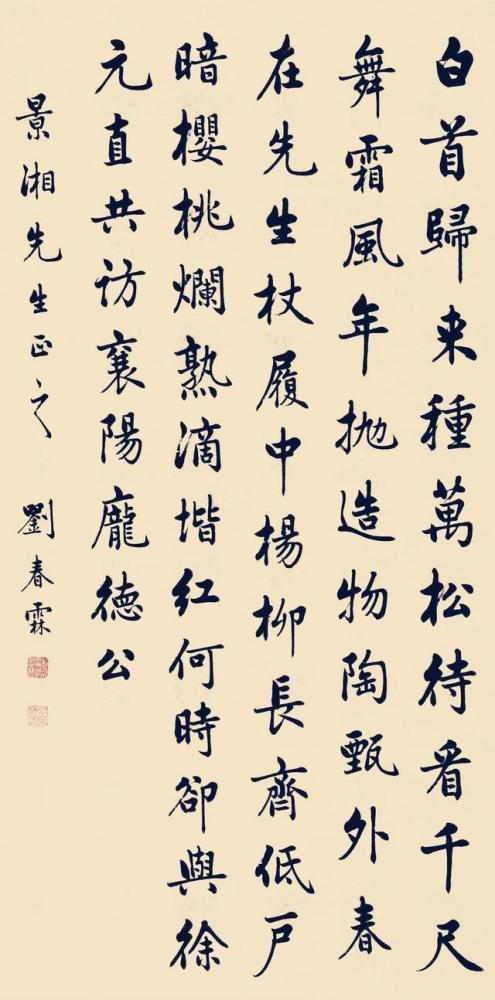 白首歸来種萬松待看千尺
舞霜風年抛造物陶甄外春
在先生杖履中楊柳長齊低戶
暗櫻桃爛熟滴堦红何時卻與徐
元直共访襄陽龐德公
景湘先生正之 劉春霖